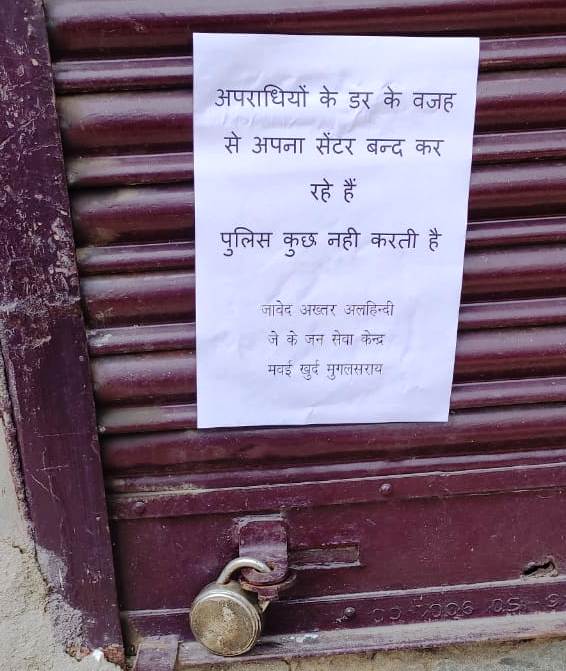 अपराधियों के डर के वजह
से अपना सेंटर बन्द कर
रहे हैं
पुलिस कुछ नही करती है
जावेद अख्तर अलहिन्दी
जे के जन सेवा केन्द्र
मवई खुर्द मुगलसराय